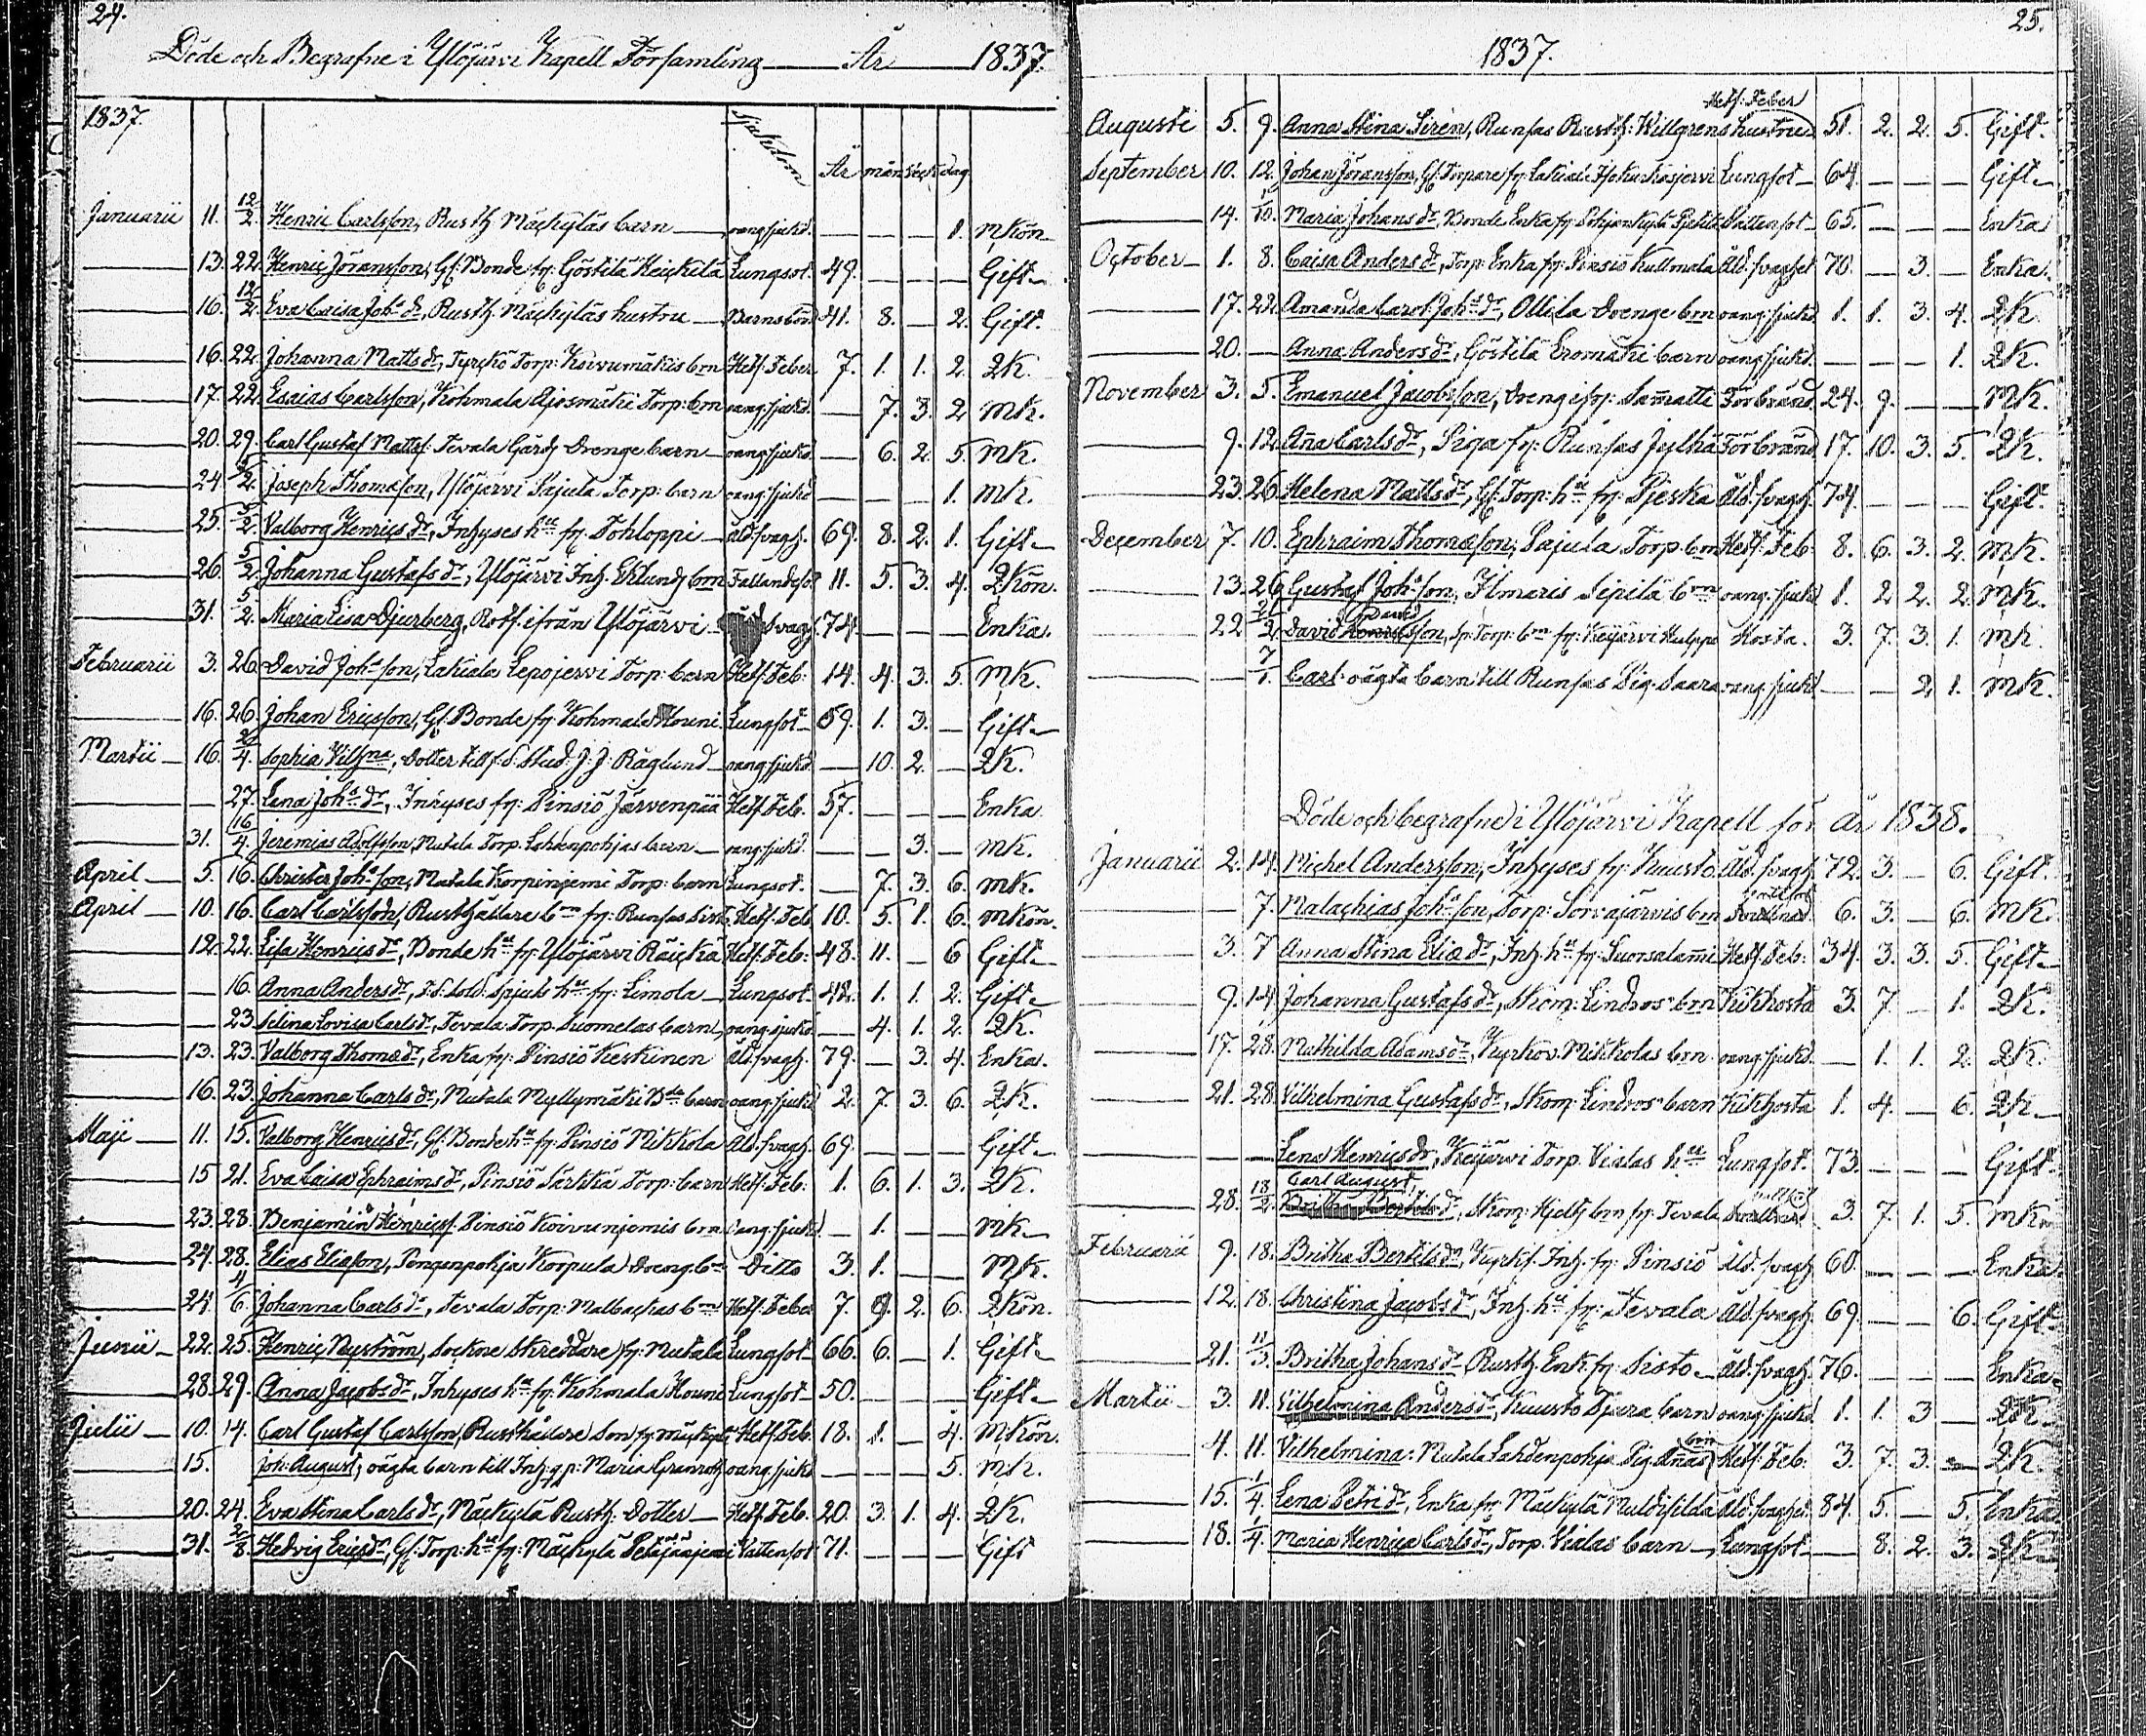 24.
Döde och Begrafne i Ylöjärvi Kapell Församling År 1837.
1837.
Sjukdom År mån veck dag
Januarii 11. 12/2. Henric Carlsson, Rusth. Mäckyläs barn oang. sjukd. — — — 1. MKön
13. 22. Henric Jöransson, Gl. Bonde fr. Göstilä Heickilä Lungsot. 49. — — — Gift
16. 12/2. Eva Caisa Joh:s dr, Rusth. Mäckyläs hustru Barnsbörd 41. 8. — 2. Gift.
16. 22. Johanna Matts dr, Tyrckö Torp: Koivumäkis brn Hetf: Feber 7. 1. 1. 2. QK.
17. 22. Esaias Carlsson, Kohmala Ajosmäki Torp: brn oang. sjukd. — 7. 3. 2. MK.
20. 29. Carl Gustaf Mattss. Tevala Gårds Drenge barn oang. sjukd. — 6. 2. 5. MK.
24. 5/2. Joseph Thomasson, Ylöjärvi Pajula Torp: barn oang. sjukd — — — 1. MK.
25. 5/2. Valborg Henrics dr, Inhyses hu fr. Tohloppi åld. svagh. 69. 8. 2. 1. Gift
26. 5/2. Johanna Gustafs dr, Ylöjärvi Inh. Eklunds brn Fallandesot 11. 5. 3. 4. QKön.
31. 5/2. Maria Lisa Djurberg, Rotf. ifrån Ylöjärvi svagh. 74. — — — Enka.
Februarii 3. 26. David Joh:s son, Lakiala Lepojervi Torp: barn Hetf: Feb: 14. 4. 3. 5. MK.
16. 26. Johan Ericsson, Gl. Bonde fr. Kohmala Houni Lungsot 59. 1. 3. — Gift
Martii 16. 2/4. Sophia Vilhna, Dotter till f.d. Stud. J. J. Råglund oang. sjukd — 10. 2. — QK.
— 27. Lena Joh:s dr, Inhyses fr. Pinsiö Järvenpää Hetf. Feb. 57. — — — Enka
31. 16/4. Jeremias Adolfsson, Mutala Torp. Lahdenpohjas barn oang. sjukd. — — 3. — MK.
April 5. 16. Christer Joh:s son, Mutala Korpinjemi Torp: barn Lungsot. — 7. 3. 6. MK.
April 10. 16. Carl Carlsson, Rusthållare brn fr. Runsas Hetf. Feb. 10. 5. 1. 6. MKön.
12. 22. Lisa Henrics dr, Bonde hu fr. Ylöjärvi Räickä Hetf. Feb: 48. 11. — 6 Gift
— 16. Anna Anders dr, f.d. Sold. Spjuts hu fr. Limola Lungsot. 42. 1. 1. 2. Gift
— 23. Selina Lovisa Carls dr, Tevala Torp. Suomelas barn oang. sjukd — 4. 1. 2. QK.
13. 23. Valborg Thomæ dr, Enka fr. Pinsiö Keskinen Åld. svagh. 79. — 3. 4. Enka.
16. 23. Johanna Carls dr, Mutala Myllymäki barn oang. sjukd 2. 7. 3. 6. QK.
Maji 11. 15. Valborg Henrics dr, Gl. Bonde hu fr. Pinsiö Mikkola Åld. svagh. 69. — — — Gift
15 21. Eva Caisa Ephraims dr, Pinsiö Särkkä Torp: barn Hetf: Feb: 1. 6. 1. 3. QK.
23. 28. Benjamin Henricss. Pinsiö Koivunjemis brn oang. sjukd — 1. — — MK
24. 28. Elias Eliasson, Pengonpohja Korpula Dreng. brn Ditto 3. 1. — — MK.
24 4/6. Johanna Carls dr, Tevala Torp: Malbackas brn Hetf. Feber 7. 9. 2. 6. QKön.
Junii 22. 25. Henric Nyström, Sockne Skreddare fr. Mutala Lungsot 66. 6. — 1. Gift
28. 29. Anna Jacobs dr, Inhyses hu fr. Kohmala Houni Lungsot 50. — — — Gift
Julii 10. 14. Carl Gustaf Carlsson, Rusthållare Son fr. Mäckylä Hetf. Feb. 18. 1. — 4. MKön.
15. Joh: August, oägta barn till Inh. q.p: Maria Granroth oang. sjukd — — — 5. MK.
20. 24. Eva Stina Carls dr, Mäckylä Rusth. Dotter Hetf. Feb. 20. 3. 1. 4. QK.
31. 2/8. Hedvig Erics dr, Gl. Torp. hu fr. Mäckylä Petäjäjemi Vattensot 71. — — — Gift
25.
1837.
Hetf: Feber
Augusti 5. 9. Anna Stina Siren, Runsas Rusth: Willgrens hustru 51. 2. 2. 5. Gift.
September 10. 12. Johan Jöransson, Gl. Torpare fr. Lakiala Lungsot 64. — — — Gift
14. Maria Johans dr, Bonde Enka fr. Pohjankylä Vattensot 65. — — — Enka
October 1. 8. Caisa Anders dr, Torp: Enka fr. Pinsiö Kullmala Åld. svaghet 70. — 3. — Enka.
17. 22. Amanda Carol: Joh:s dr, Ollila Drenge brn oang. sjukd. 1. 1. 3. 4. QK.
20. — Anna Anders dr, Göstilä Eromäki barn oang. sjukd. — — — 1. QK.
November 3. 5. Emanuel Jacobsson, Dreng ifr: Samatti Förbränd. 24. 9. — — MK.
9. 12. Anna Carls dr, Piga fr: Runsas Jylhä Förbränd. 17. 10. 3. 5. QK.
23. 26. Helena Matts dr, Gl. Torp: hu fr. Pjeska Åld. svagh. 74. — — — Gift.
December 7. 10. Ephraim Thomæson, Pajula Torp. brn Hetf. Feb. 8. 6. 3. 2. MK.
13. 26 Gustaf Joh:son, Ilmaris Sipilä brn oang. sjukd. 1. 2 2. 2. MK.
David
22 David son, Torp: brn fr. Keijärvi Hulppo Hosta. 3. 7. 3. 1. MK.
7/1. Carl oägta barn till Runsas Pig. Saara oang. sjukd — — 2 1. MK.
Döde och begrafne i Ylöjärvi Kapell för år 1838.
Januarii 2. 14. Michel Andersson, Inhyses fr. Kuusto Åld. svagh. 72. 3. — 6. Gift.
— 7. Malachias Joh:s son, Torp: Sorvajärvis brn 6. 3. — 6. MK.
3. 7 Anna Stina Eliæ dr, Inh. hu fr. Suorsalammi Hetf. Feb: 34. 3. 3. 5. Gift
9. 14 Johanna Gustafs dr, Skom: Lindros brn Kikhosta 3. 7 — 1. QK.
17. 28. Mathilda Adams dr, Kyrkov. Mikkolas brn oang. sjukd. — 1. 1. 2. QK.
21. 28 Vilhelmina Gustafs dr, Skom: Lindros barn Kikhosta 1. 4. — 6. QK
Lena Henrics dr, Keijärvi Torp. Vialas hu Lungsot. 73. — — — Gift
Carl August,
28. 18/2. Skom: Hjelts brn fr. Tevala 3. 7. 1. 5. MK
Februarii 9. 18. Britha Bertils dr, Kyrkf. Inh. fr. Pinsiö Åld. svagh 60. — — — Enka
12. 18. Christina Jacobs dr, Inh. hu fr. Tevala Åld. svagh. 69 — — 6. Gift
21. 11/3. Britha Johans dr, Rusth. Enk. fr. Sisto Åld. svagh. 76. — — — Enka
Martii 3. 11. Vilhelmina Anders dr, Kuusto Djura barn oang. sjukd. 1. 1. 3 — QK
brn
4. 11. Vilhelmina: Mutala Lahdenpohja Pig. Annas Hetf: Feb. 3. 7. 3. — QK.
15. 1/4. Lena Petri dr, Enka fr. Mäckylä Åld. svaghet. 84. 5. — 5. Enka
18. 1/4. Maria Henrica Carls dr, Torp. Vialas barn Lungsot — 8. 2. 3. QK